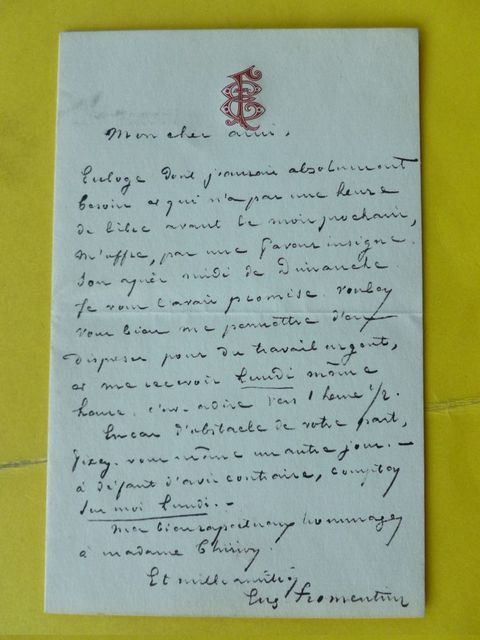 EF
Mon cher ami,
Euloge dont j'aurais absolument
besoin et qui n'a pas une heure
de libre avant le mois prochain,
m'offre, par une faveur insigne.
Son après midi de Dimanche.
Je vous l'avais promise. voulez
vous bien me permettre d'en
disposer pour du travail urgent,
et me recevoir Lundi même
heure. c'est à dire vers 1 heure 1/2.
En cas d'obstacle de votre part,
fixez. vous même un autre jour. —
à défaut d'avis contraire, comptez
sur moi Lundi. —
Mes bien respectueux hommages
à madame
Et mille amitiés
Eug Fromentin